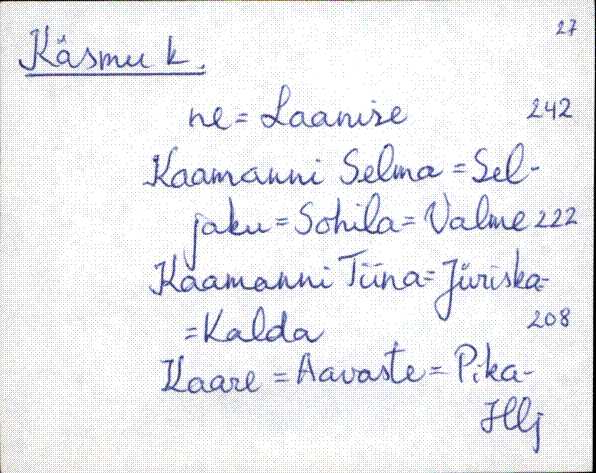 27
Käsmu k.
ne = Laanise 242
Kaamanni Selma = Sel-
jaku = Sohila = Valme 222
Kaamanni Tiina = Jüriska-
= Kalda 208
Kaare = Aavaste = Pika-
Hlj